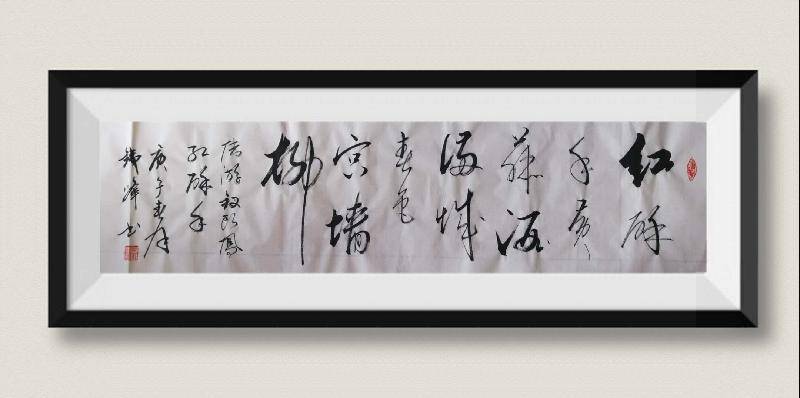 红酥
手黄
藤酒
满城
春色
宫墙
柳
陆游钗头凤
红酥手
庚子春月
峰书